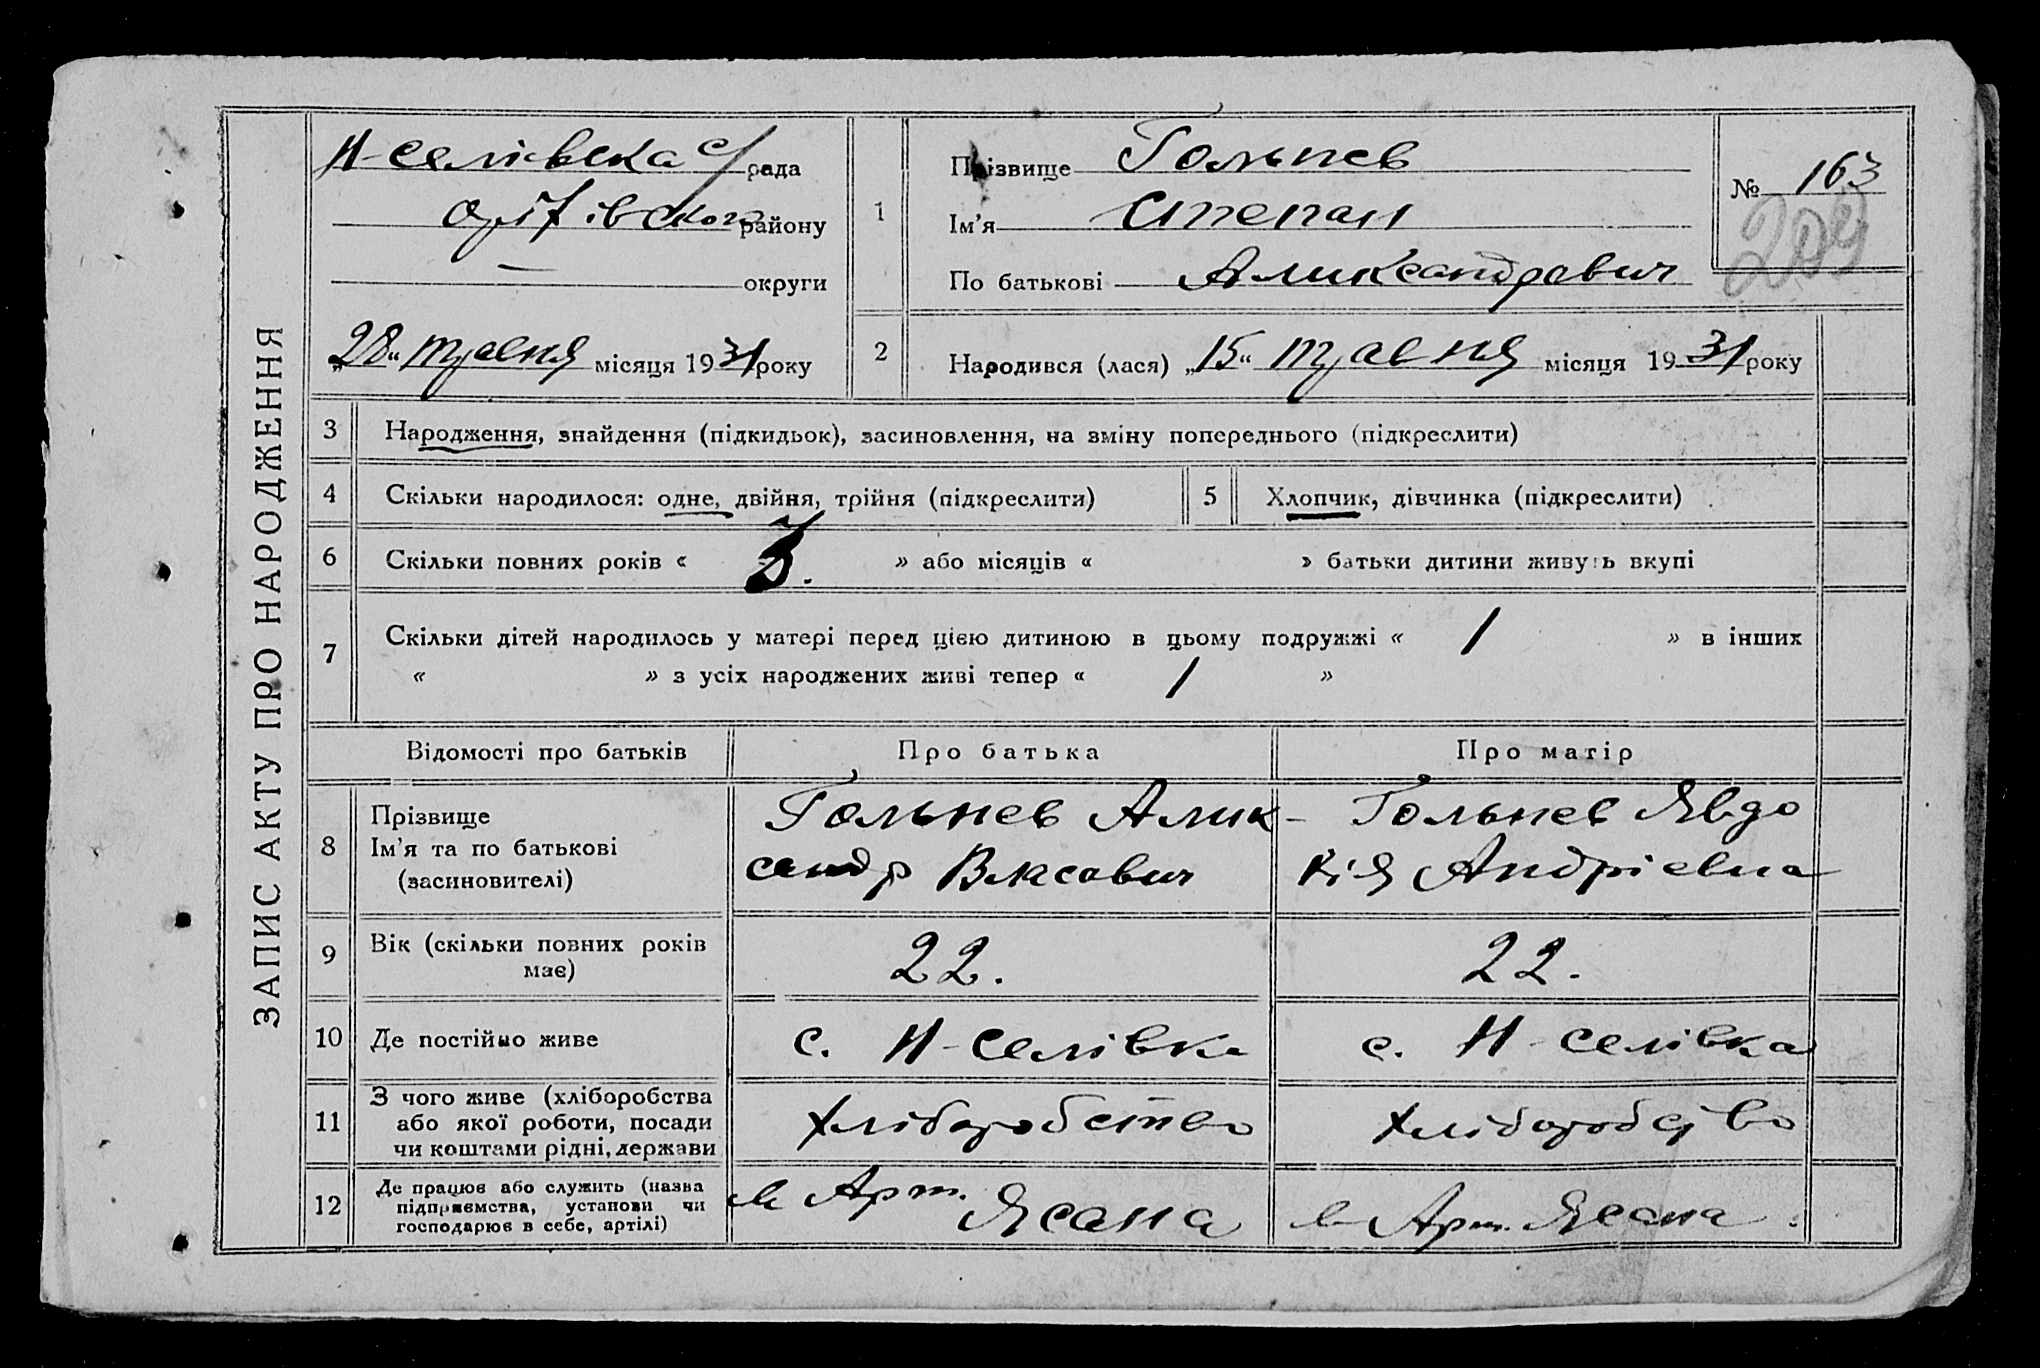 ЗАПИС АКТУ ПРО НАРОДЖЕННЯ
Н-селівська с/рада
району
— округи
„28“ травня місяця 1931 року
1
Прізвище Гольнев
Ім'я Степан
По батькові Алиександрович
№ 163
209
2
Народився (лася) „15“ травня місяця 1931 року
3 Народження, знайдення (підкидьок), засиновлення, на зміну попереднього (підкреслити)
4 Скільки народилося: одне, двійня, трійня (підкреслити)
5 Хлопчик, дівчинка (підкреслити)
6 Скільки повних років « 3. » або місяців « » батьки дитини живуть вкупі
7 Скільки дітей народилось у матері перед цією дитиною в цьому подружжі « 1 » в інших
« » з усіх народжених живі тепер « 1 »
Відомості про батьків Про батька Про матір
8 Прізвище
Ім'я та по батькові
(засиновителі)
Гольнев Алик-
сандр Власович
Гольнев Явдо
кія Андріевна
9 Вік (скільки повних років
має)
22. 22.
10 Де постійно живе с. Н-Селівка с. Н-селівка
11 З чого живе (хліборобства
або якої роботи, посади
чи коштами рідні, держави
хліборобство хліборобство
12 Де працює або служить (назва
підприємства, установи чи
господарює в себе, артілі)
в Арт. Ясана в Арт. Ясана